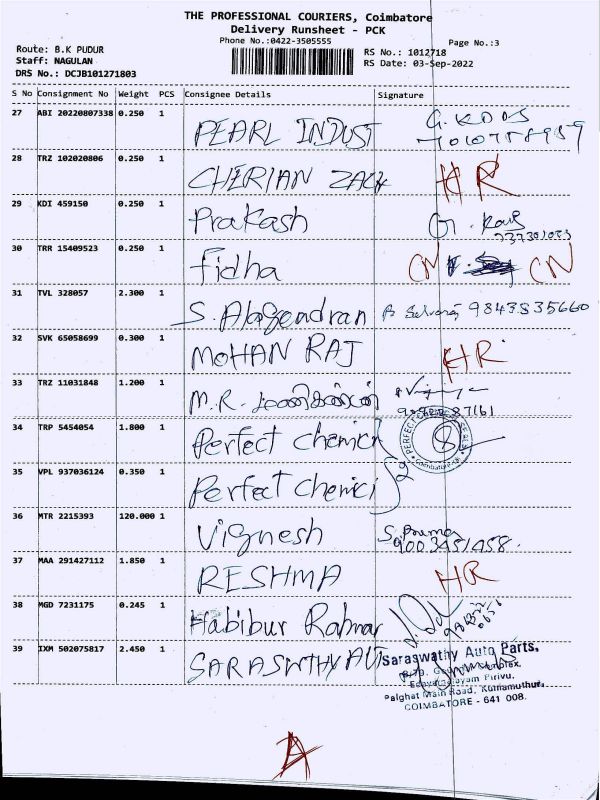 THE PROFESSIONAL COURIERS, Coimbatore
Delivery Runsheet - PCK
Phone No.:0422-3505555
Page No.:3
Route: B.K PUDUR
Staff: NAGULAN
DRS No.: DCJB101271803
RS No.: 1012718
RS Date: 03-Sep-2022
S No Consignment No Weight PCS Consignee Details Signature
27 ABI 20220807338 0.250 1 PEARL INDUST
28 TRZ 102020806 0.250 1 CHERIAN ZACH HR
29 KDI 459150 0.250 1 Prakash
30 TRR 15409523 0.250 1 Fidha CN CN
31 TVL 328057 2.300 1 S. Alagendran 9843835660
32 SVK 65058699 0.300 1 MOHAN RAJ HR
33 TRZ 11031848 1.200 1 M.R.
34 TRP 5454054 1.800 1 Perfect chemicl
35 VPL 937036124 0.350 1 Perfect chemicl
36 MTR 2215393 120.000 1 Vignesh 9003451458.
37 MAA 291427112 1.850 1 RESHMA HR
38 MGD 7231175 0.245 1 Habibur Rahmar
39 IXM 502075817 2.450 1 SARASWTHY AUT
Saraswathy Auto Parts,
Palghat Main Road, Kuniamuthur,
COIMBATORE - 641 008.